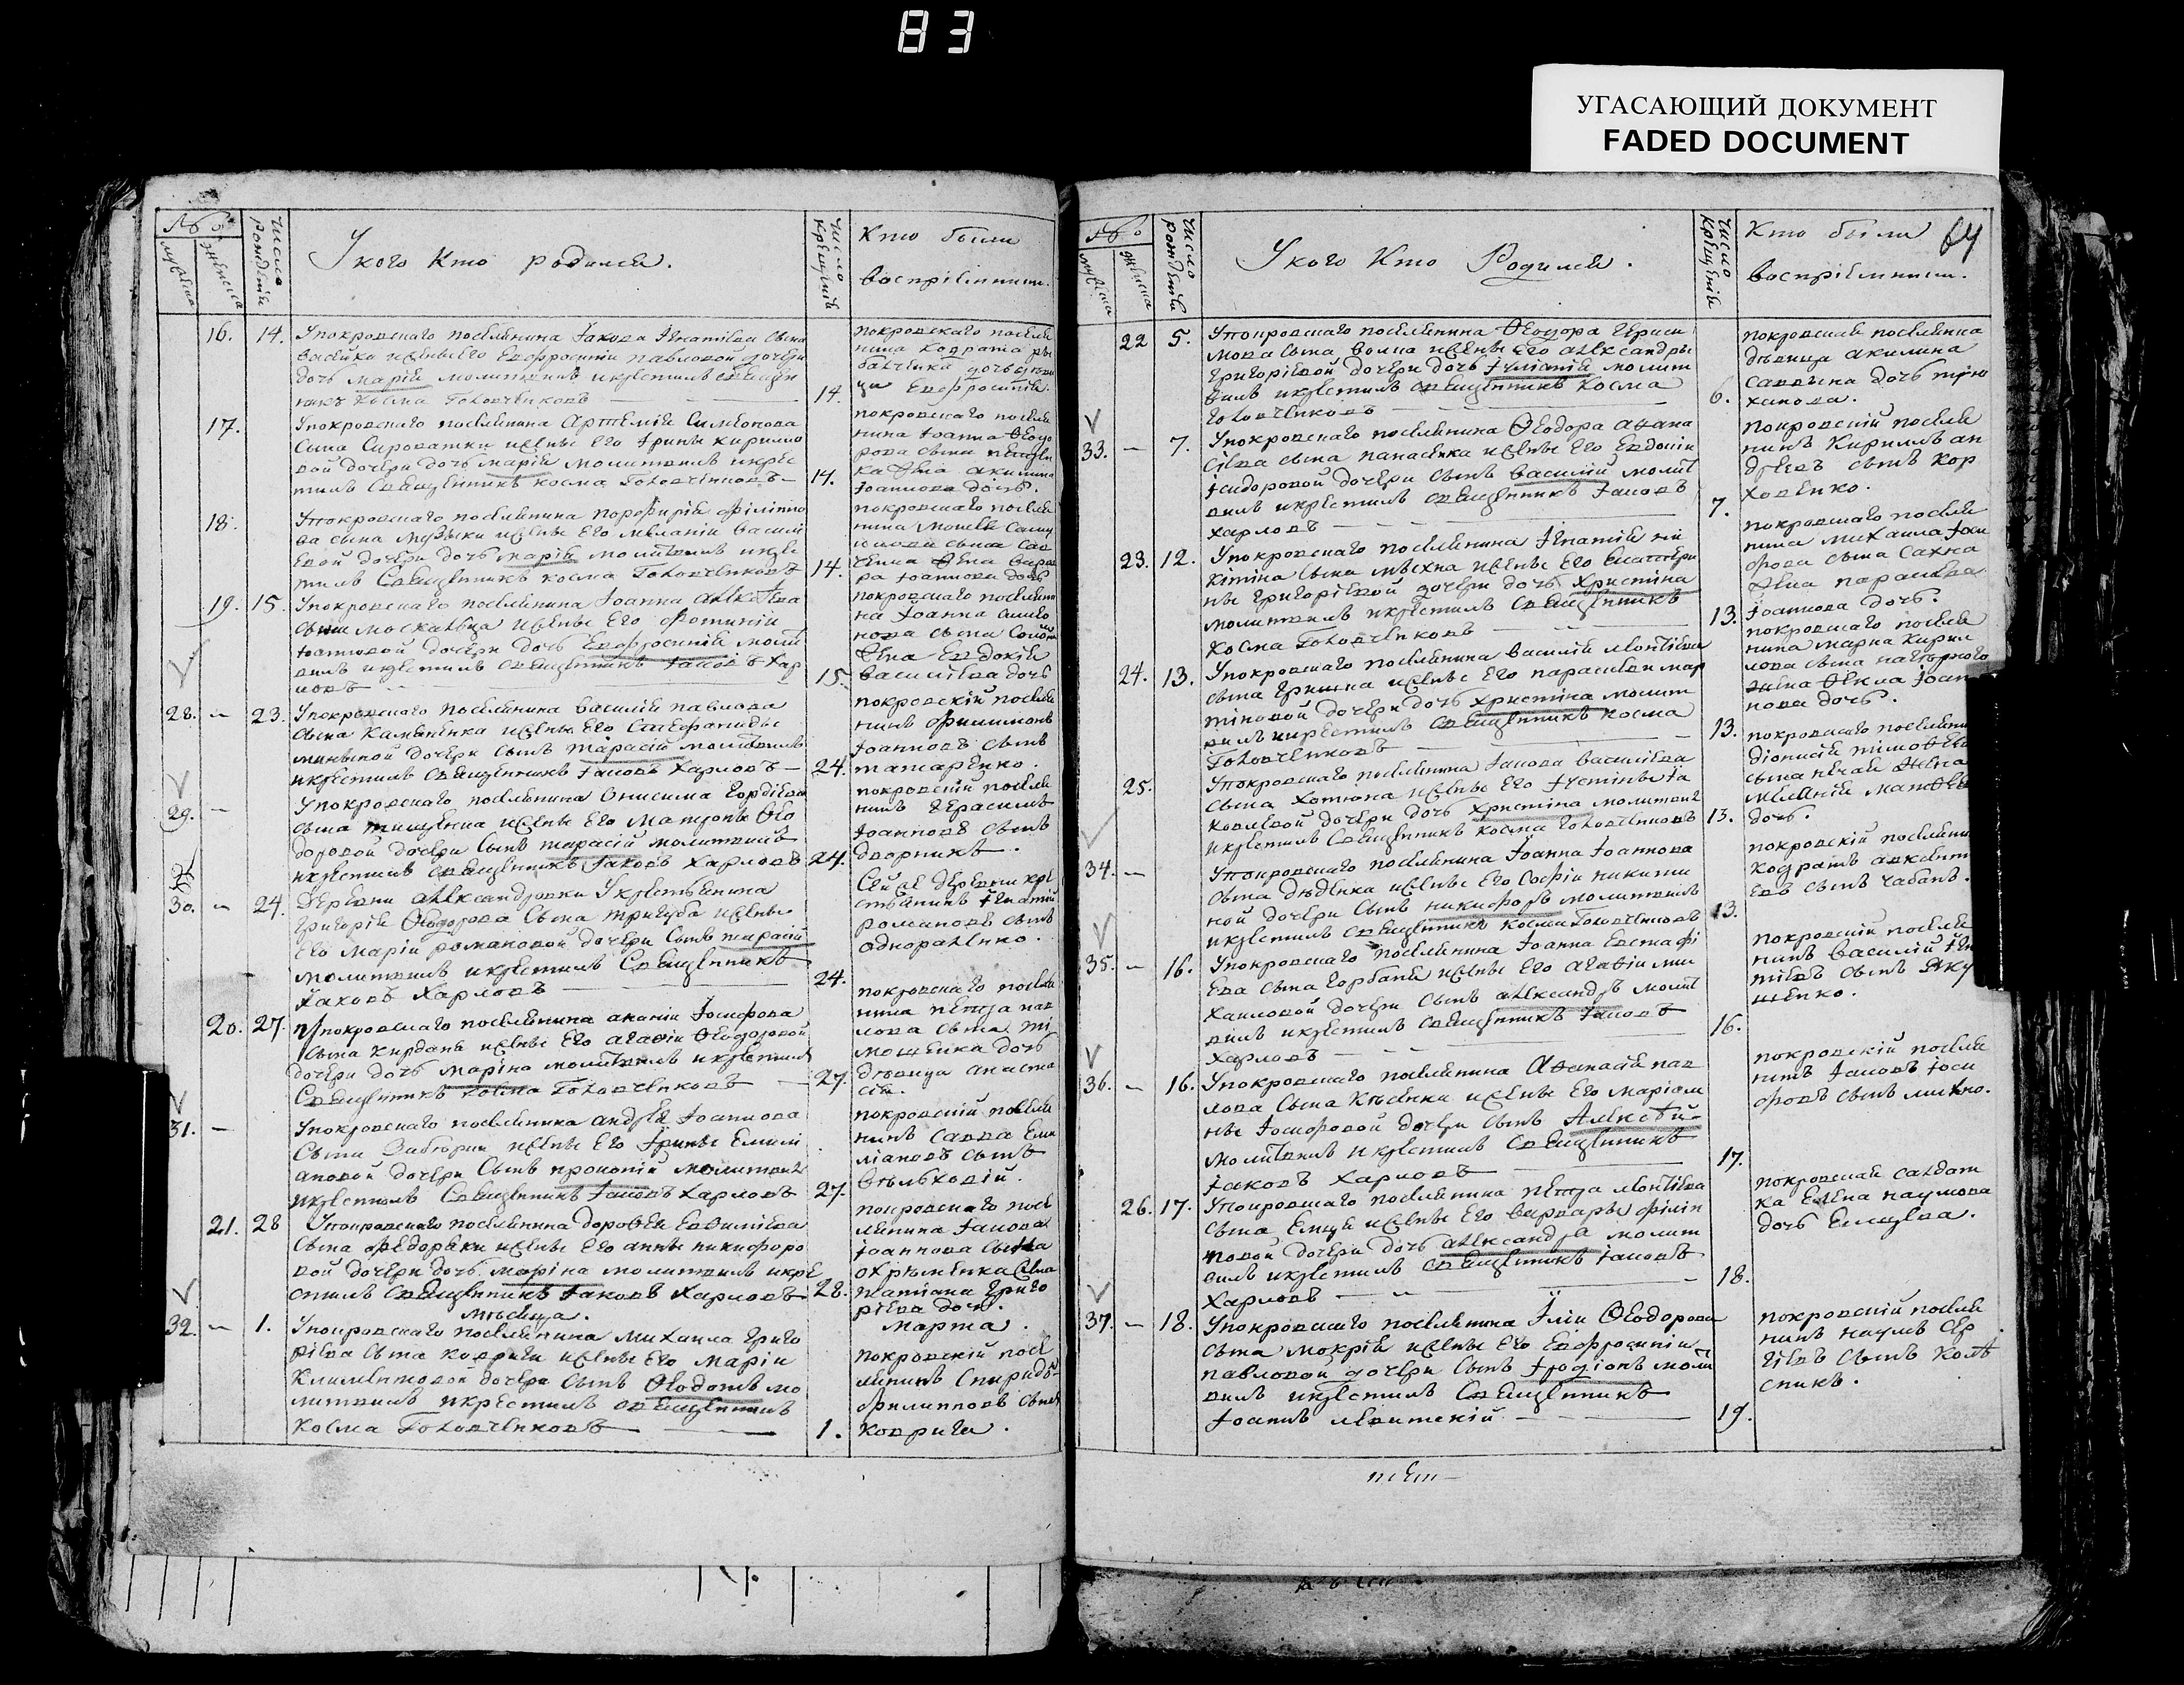 83
УГАСАЮЩИЙ ДОКУМЕНТ
FADED DOCUMENT
№
мужеска
женска
число рождения
Укого Кто родился.
число крещенія
Кто были
воспріемники.
16. 14. Упокровскаго поселянина Іакова Игнатіева сына
Васейка ижены Его Евфросиніи павловой дочери
дочь Марія молитвилъ икрестилъ священ
никъ Косма Головченковъ 14.
покровскаго поселя
нина Кодрата
дочь
ца Евфросинія.
17. Упокровскаго поселянина Артемія Симеонова
сына Сироватки ижены Его Ирины кирило
вой дочери дочь Марія молитвилъ икрес
тилъ Священникъ косма Головченковъ 14.
покровскаго поселя
нина Іоанна Ѳеодо
рова сына
ка жена акилина
Іоаннова дочь.
18. Упокровскаго поселянина порфирія филиппо
ва сына музыки ижены Его меланіи васили
евой дочери дочь Марія молитвилъ икре
тилъ Священникъ косма Головченковъ 14.
покровскаго поселя
нина Моисея Саму
илова сына Сав
ченка жена Варва
ра Іоаннова дочь
19. 15. Упокровскаго поселянина Іоанна алексѣева
сына москальца ижены Его фотиніи
Іоанновой дочери дочь Евфросинія моли
вилъ икрестилъ священникъ Іаковъ Хар
ловъ 15.
покровскаго поселяни
на Іоанна
нова сына
жена Евдокія
василіева дочь
28. 23. Упокровскаго поселянина василія павлова
сына Каменика ижены Его Стефаниды
миныной дочери сынъ тарасій молитвилъ
икрестилъ священникъ Іаковъ Харловъ 24.
покровскій поселя
нинъ филимонъ
Іоанновъ сынъ
татаренко.
29. Упокровскаго поселянина Онисима гордіева
сына тищенка ижены Его Матроны Ѳео
доровой дочери сынъ тарасій молитвилъ
икрестилъ священникъ Іаковъ Харловъ 24.
покровскій поселя
нинъ герасимъ
Іоанновъ сынъ
дворникъ.
30. 24. Деревни александровки Укрестьянина
григорія Ѳеодорова сына тригуба ижены
его Маріи романовой дочери сынъ тарасій
молитвилъ икрестилъ Священникъ
Іаковъ Харловъ 24.
Сейже деревни кре
стьянинъ Игнатій
романовъ сынъ
однораленко.
20. 27. Упокровскаго поселянина ананіи Іосифова
сына кирдана ижены Его агафіи Ѳеодоровой
дочери дочь марина молитвилъ икрестилъ
Священникъ косма Головченковъ 27.
покровскаго поселя
нина петра пав
лова сына ти
мошенка дочь
дѣвица анаста
сія.
31. Упокровскаго поселянина андрея Іоаннова
сына Забгорки ижены Его Ирины Емили
ановой дочери сынъ прокопій молитвилъ
икрестилъ Священникъ Іаковъ Харловъ 27.
покровскій поселя
нинъ Савва Еми
ліановъ сынъ
21. 28 Упокровскаго поселянина дорофея Евфиміева
сына федоряки ижены Его анны никифоро
вой дочери дочь марина молитвилъ икре
стилъ Священникъ Іаковъ Харловъ 28.
покровскаго посе
лянина Іакова
Іоаннова сына
охрѣменка жена
татіана григо
ріева дочь.
Мѣсяца. Марта.
32. 1. Упокровскаго поселянина михаила григо
ріева сына ковриги ижены Его маріи
климентовой дочери сынъ Ѳеодотъ мо
литвилъ икрестилъ священникъ
косма Головченковъ 1.
покровскій посе
лянинъ Спиридо
филипповъ сынъ
коврига.
64
№
мужеска
женска
число рожденія
Укого Кто Родился.
число крещенія
Кто были
воспріемники.
22 5. Упокровскаго поселянина Ѳеодора гераси
мова сына волка ижены Его александры
григоріевой дочери дочь Іуліанія молит
вилъ икрестилъ священникъ косма
Головченковъ 6.
покровская поселянка
дѣвица акилина
саввина дочь
33. 7. Упокровскаго поселянина Ѳеодора афана
сіева сына панасенка ижены Его Евдокіи
Исидоровой дочери сынъ василій молит
вилъ икрестилъ священникъ Іаковъ
харловъ 7.
покровскій поселя
нинъ кириллъ ан
дреевъ сынъ кор
ховенко.
23. 12. Упокровскаго поселянина Игнатія ни
китина сына мѣхна ижены Его Екатери
ны григоріевой дочери дочь Христина
молитвилъ икрестилъ Священникъ
Косма Головченковъ 13.
покровскаго поселя
нина михаила Іоси
фова сына Сахна
жена параскева
Іоаннова дочь.
24. 13. Упокровскаго поселянина василія леонтіева
сына грицька ижены Его параскеви мар
тиновой дочери дочь христина молит
вилъ икрестилъ священникъ косма
Головченковъ 13.
покровскаго поселя
нина марка кирил
лова сына нагорного
жена Ѳекла Іоан
нова дочь.
25. Упокровскаго поселянина Іакова василіева
сына хотюна ижены Его Іустины Іа
ковлевой дочери дочь христина молитвилъ
икрестилъ Священникъ косма Головченковъ 13.
покровскаго поселяни
діонисія тимоѳее
сына нечая жена
меланія матѳее
дочь.
34. Упокровскаго поселянина Іоанна Іоаннова
сына дѣденка ижены Его Софіи никити
ной дочери сынъ никифоръ молитвилъ
икрестилъ Священникъ косма Головченковъ 13.
покровскій поселяни
кодратъ авксент
евъ сынъ чабанъ.
35. 16. Упокровскаго поселянина Іоанна Евстафі
ева сына горбаня ижены Его агафіи ми
хаиловой дочери сынъ александръ молит
вилъ икрестилъ священникъ Іаковъ
Харловъ 16.
покровскій поселя
нинъ василій Игн
тіевъ сынъ Яку
шенко.
36. 16. Упокровскаго поселянина Афанасія пав
лова сына ижены Его Маріам
ны Іосифовой дочери сынъ Алексѣй
молитвилъ икрестилъ Священникъ
Іаковъ Харловъ 17.
покровскій поселя
нинъ Іаковъ Іоси
фовъ сынъ михно.
26. 17. Упокровскаго поселянина петра леонтіева
сына Емца ижены Его варвары филип
повой дочери дочь александра молит
вилъ икрестилъ священникъ Іаковъ
Харловъ 18.
покровская салдат
ка Елена наумова
дочь Емцева.
37. 18. Упокровскаго поселянина Иліи Ѳеодорова
сына мокрія ижены Его Евфросиніи
павловой дочери сынъ Иродіонъ моли
вилъ икрестилъ Священникъ
Іоаннъ левитскій 19.
покровскій поселя
нинъ наумъ Сер
гіевъ сынъ колѣ
сникъ.